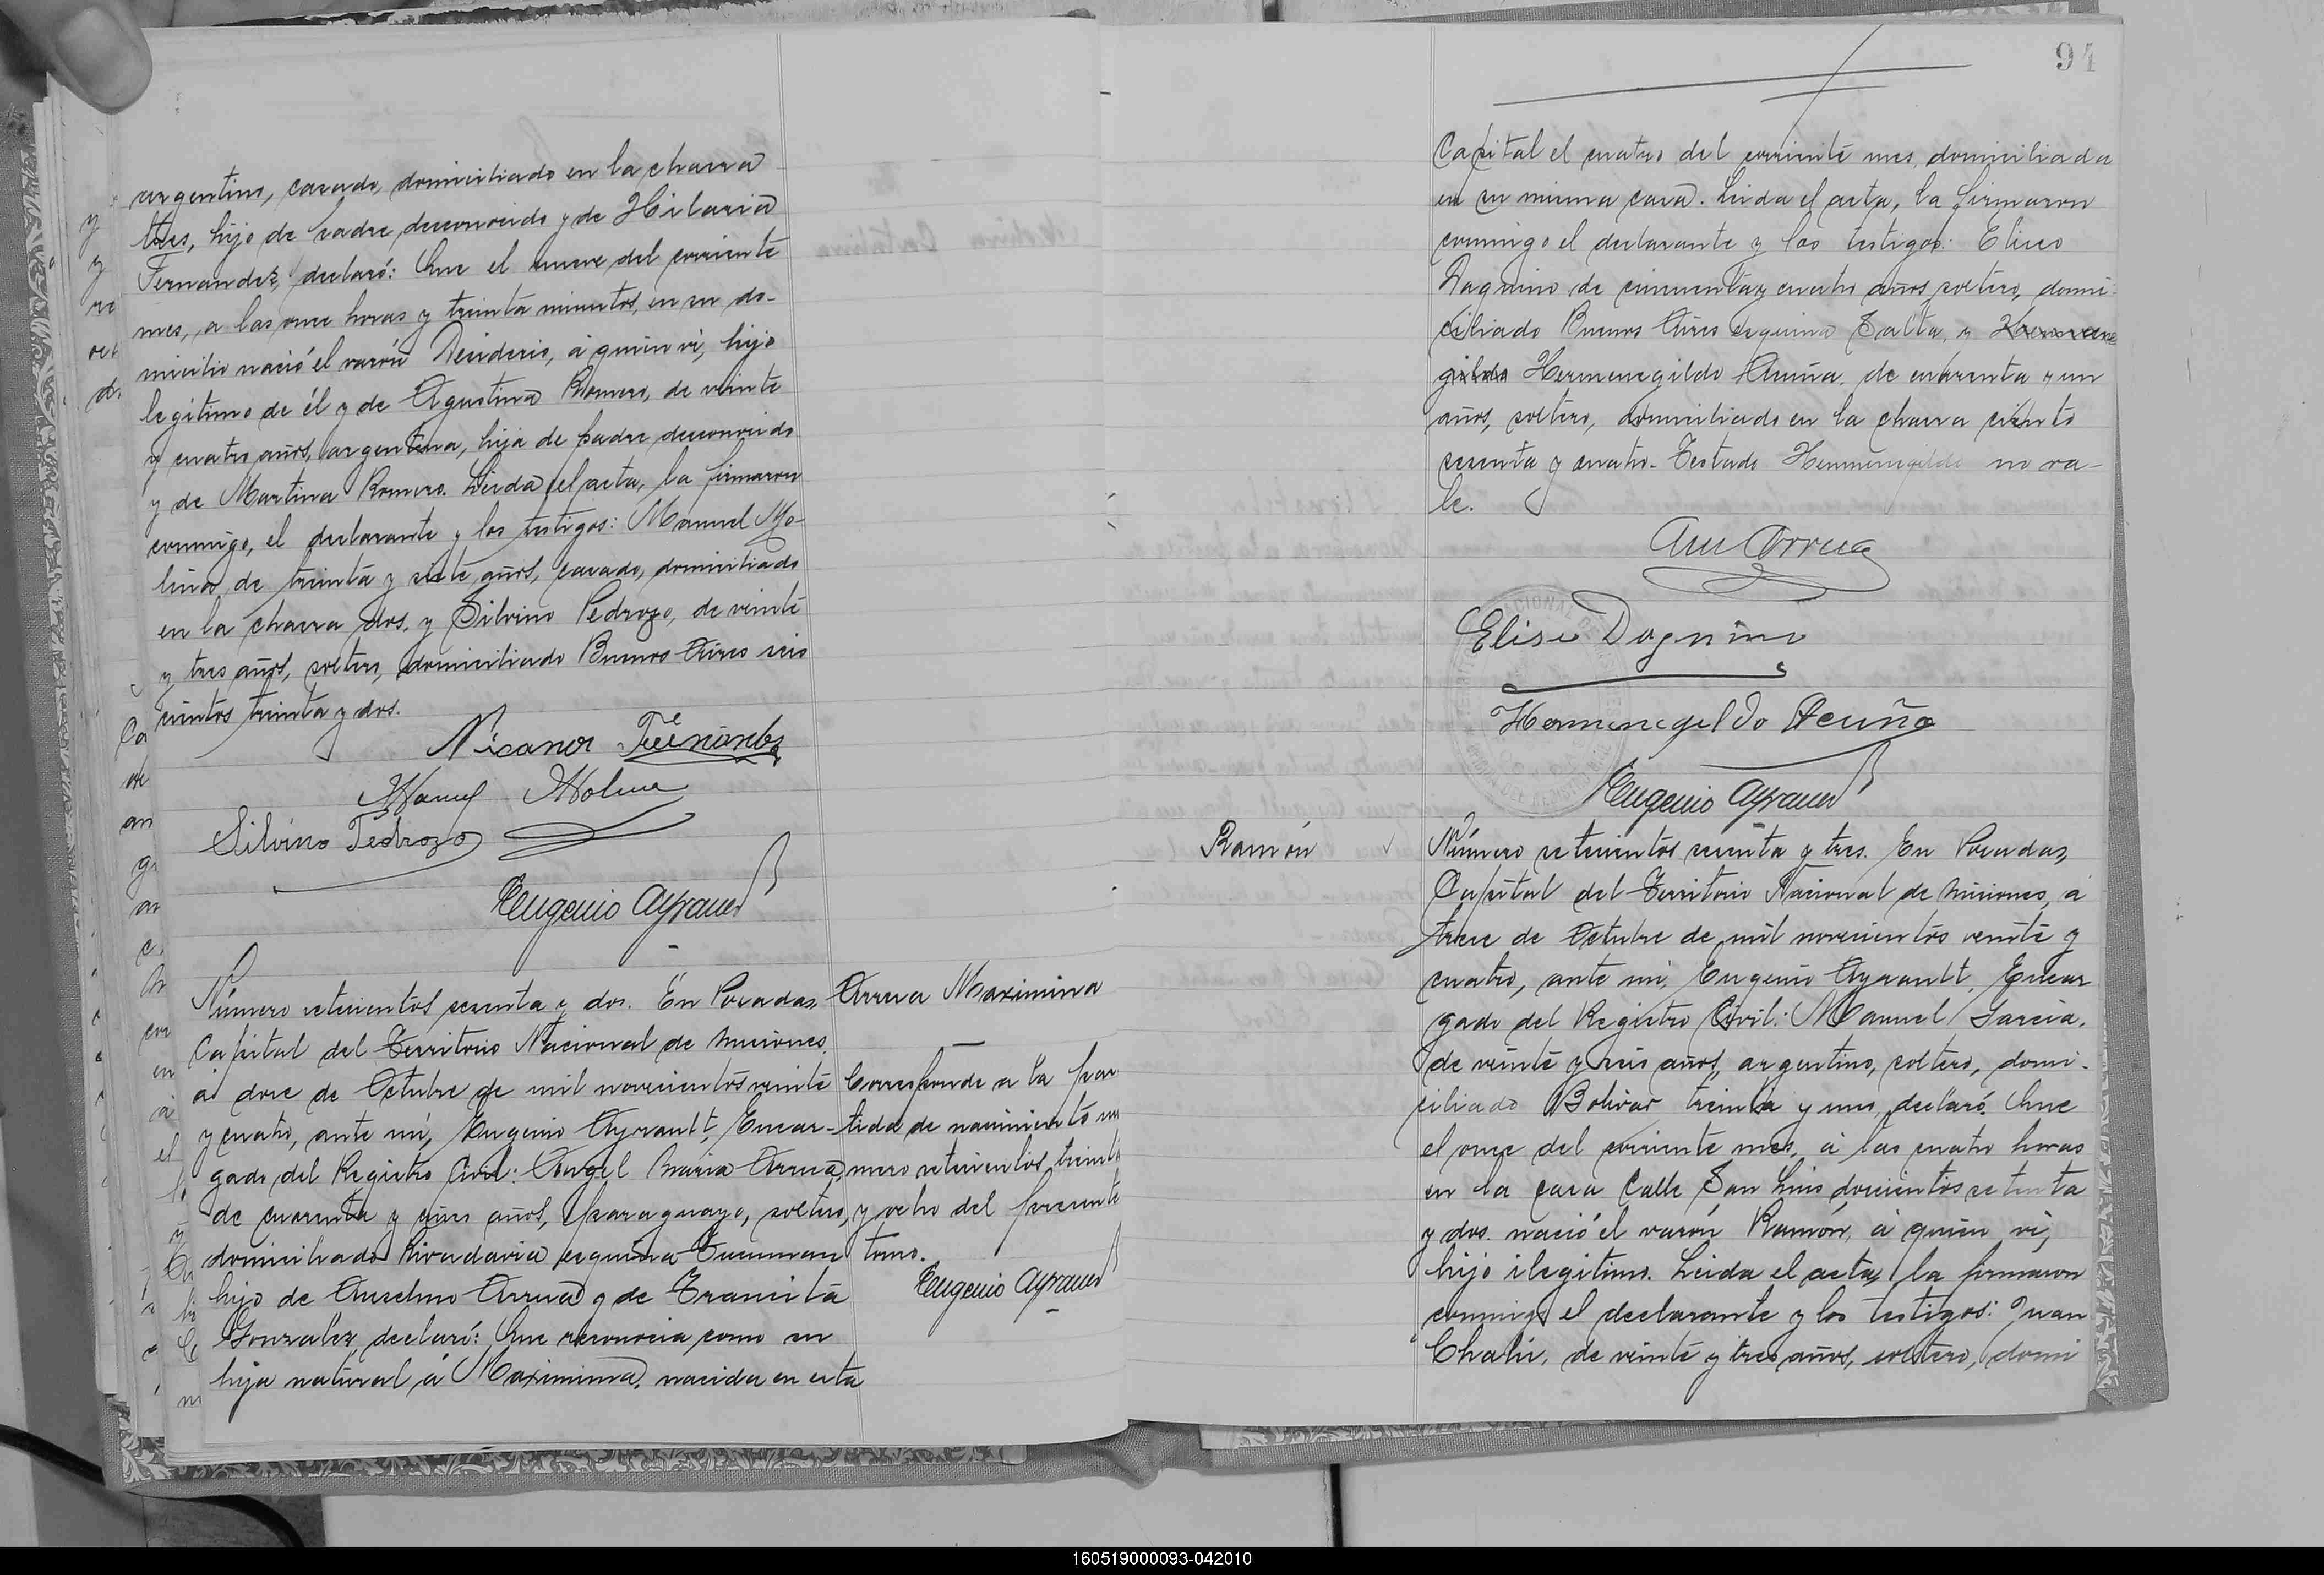 argentino, casado, domiciliado en la chacra
tres, hijo de padre desconocido y de Hilaria
Fernandez, declaró: Que el nueve del corriente
mes, a las once horas y treinta minutos, en su do-
micilio nació el varón Desiderio, á quien ví, hijo
legítimo de él y de Agustina Romero, de veinte
y cuatro años, argentina, hija de padre desconocido
y de Martina Romero. Leida el acta, la firmaron
conmigo, el declarante y los testigos: Manuel Mo-
lina, de treinta y siete años, casado, domiciliado
en la chacra dos, y Silvino Pedrozo, de veinte
y tres años, soltero, domiciliado Buenos Aires seis
cientos treinta y dos.
Nicanor Fernández
Manuel Molina
Silvino Pedrozo
Eugenio Ayrault
Número setecientos sesenta y dos. En Posadas,
Capital del Territorio Nacional de Misiones,
á doce de Octubre de mil novecientos veinte
y cuatro, ante mí, Eugenio Ayrault, Encar-
gado del Registro Civil: Angel Maria Arrua,
de cuarenta y cinco años, paraguayo, soltero,
domiciliado Rivadavia esquina Tucuman
hijo de Anselmo Arrua y de Transita
Gonzalez, declaró: Que reconocia como su
hija natural á Maximina, nacida en esta
Arrua Maximina
Corresponde a la par
tida de nacimiento nu
mero setecientos treinta
y ocho del presente
tomo.
Eugenio Ayrault
94
Capital el cuatro del corriente mes, domiciliada
en su misma casa. Leida el acta, la firmaron
conmigo el declarante y los testigos: Eliseo
Dagnino de cincuenta y cuatro años, soltero, domi-
ciliado Buenos Aires esquina Salta, y Hermene
gildo Hermenegildo Acuña, de cuarenta y un
años, soltero, domiciliado en la chacra ciento
sesenta y cuatro. Testado Hermenegildo no va-
le.
Elise Dagnino
Hermenegildo Acuña
Eugenio Ayrault
Ramón
Número setecientos sesenta y tres. En Posadas,
Capital del Territorio Nacional de Misiones, á
trece de Octubre de mil novecientos veinte y
cuatro, ante mí, Eugenio Ayrault, Encar
gado del Registro Civil: Manuel Garcia,
de veinte y seis años, argentino, soltero, domi-
ciliado Bolivar treinta y uno, declaró: Que
el once del corriente mes, á las cuatro horas
en la casa Calle San Luis doscientos setenta
y dos. nació el varón Ramón, á quien ví,
hijo ilegitimo. Leida el acta, la firmaron
conmigo el declarante y los testigos: Juan
de veinte y tres años, soltero, domi
160519000093-042010